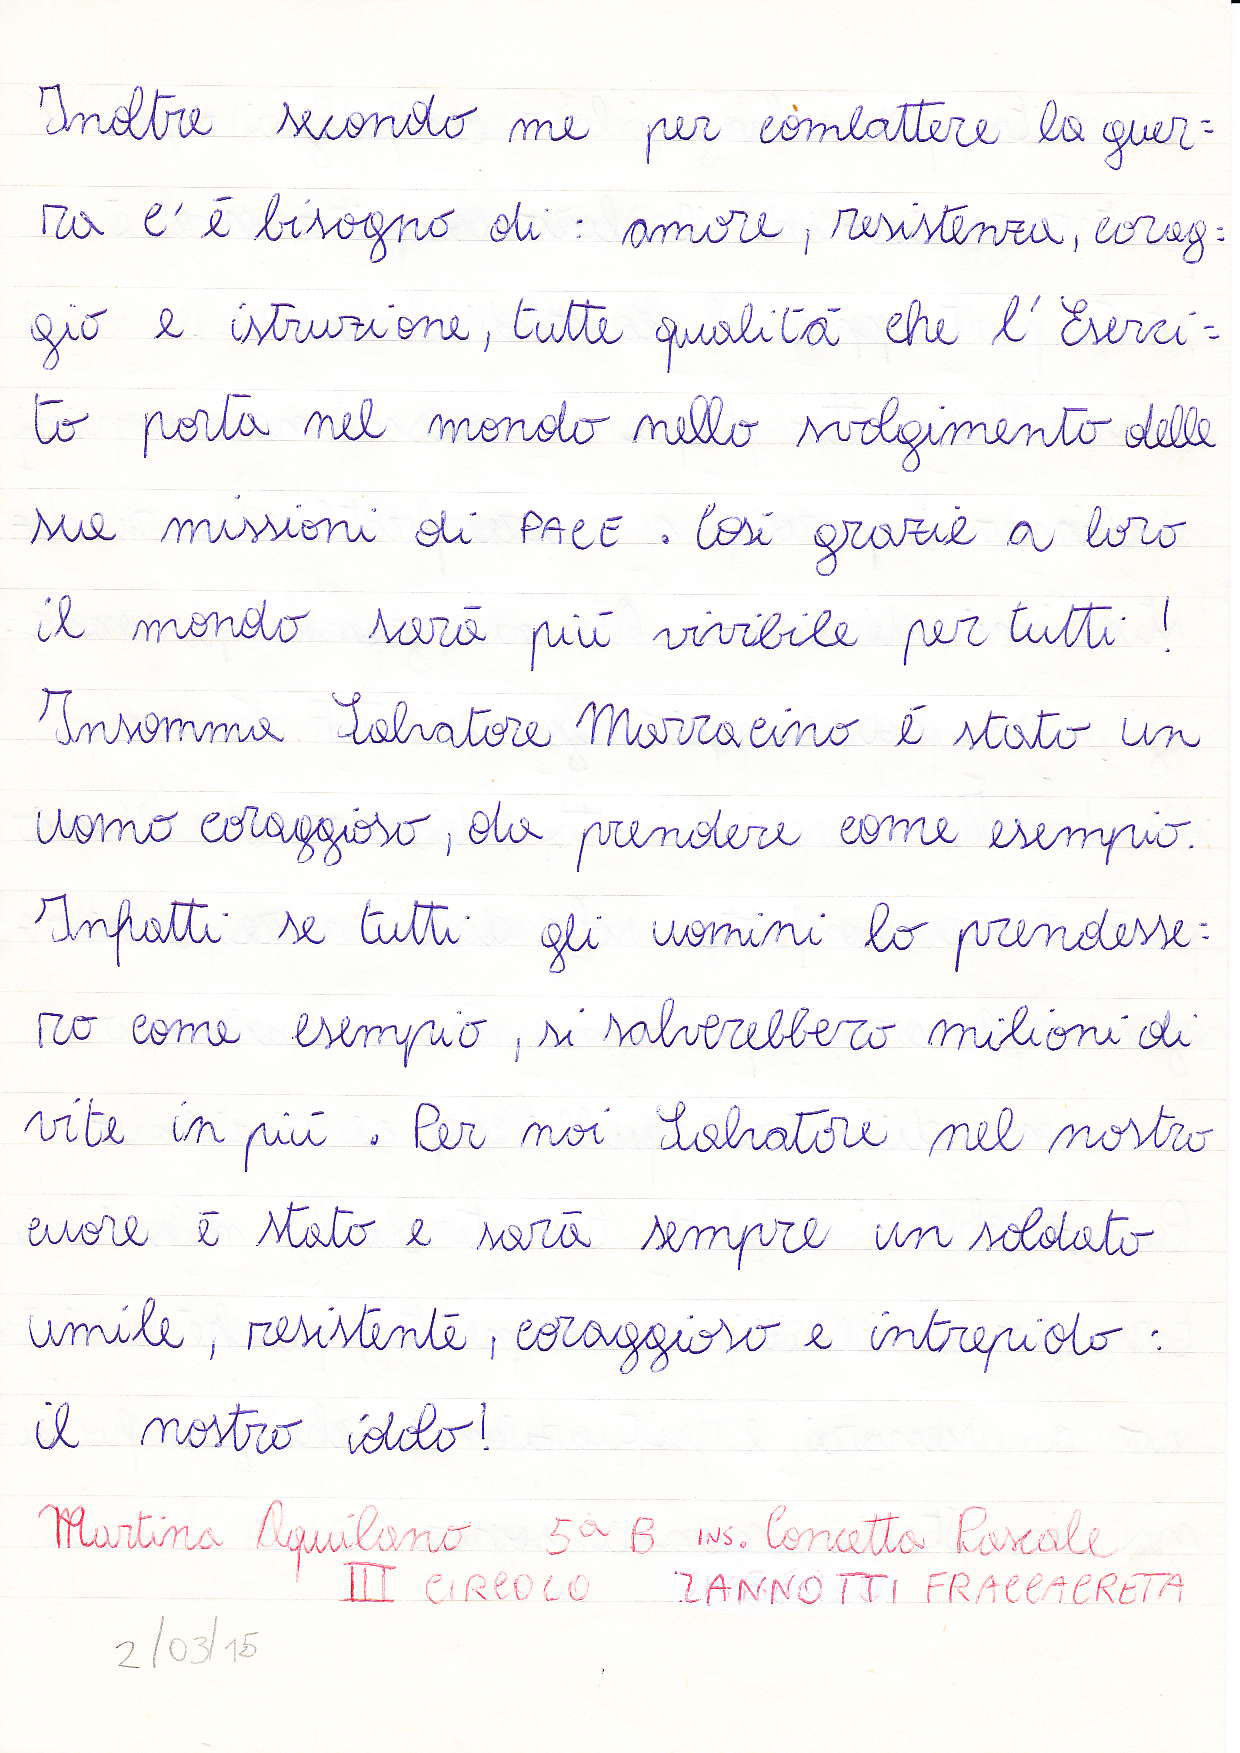 Inoltre secondo me per combattere la guer=
ra c'è bisogno di: amore, resistenza, corag=
gio e istruzione, tutte qualità che l'Eserci=
to porta nel mondo nello svolgimento delle
sue missioni di PACE. Così grazie a loro
il mondo sarà più vivibile per tutti!
Insomma Salvatore Marracino è stato un
uomo coraggioso, da prendere come esempio.
Infatti se tutti gli uomini lo prendesse=
ro come esempio, si salverebbero milioni di
vite in più. Per noi Salvatore nel nostro
cuore è stato e sarà sempre un soldato
umile, resistente, coraggioso e intrepido:
il nostro idolo!
Martina Aquilano 5ª B INS. Concetta Pascale
III CIRCOLO ZANNOTTI FRACCACRETA
2/03/15